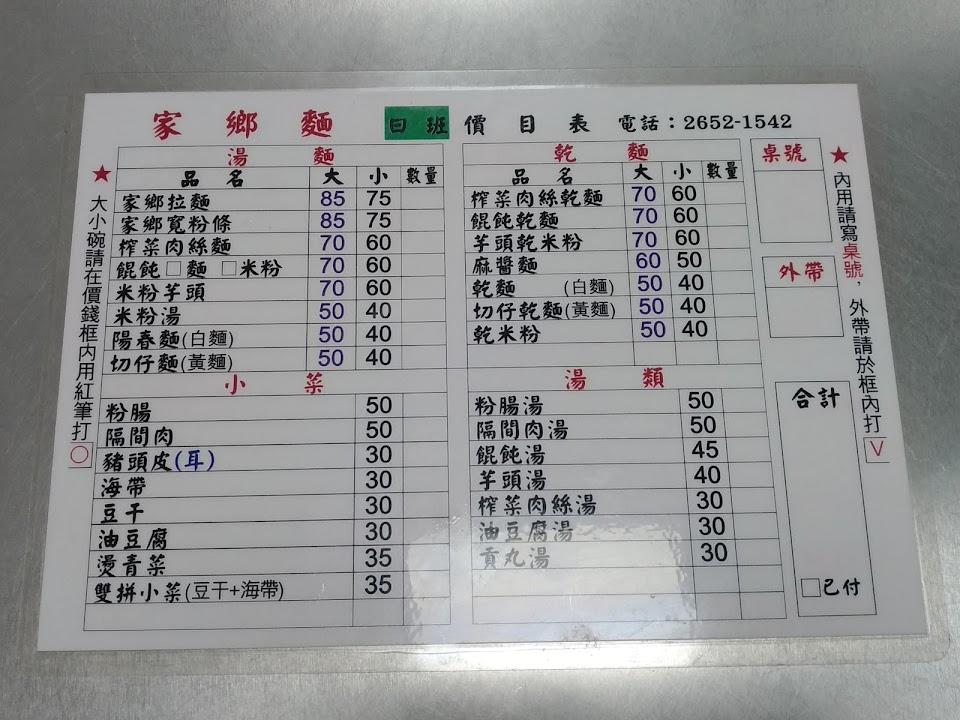 家鄉麵 日班 價目表 電話：2652-1542
湯麵
品名 大 小 數量
家鄉拉麵 85 75
家鄉寬粉條 85 75
榨菜肉絲麵 70 60
餛飩□麵 □米粉 70 60
米粉芋頭 70 60
米粉湯 50 40
陽春麵(白麵) 50 40
切仔麵(黃麵) 50 40
小菜
粉腸 50
隔間肉 50
豬頭皮(耳) 30
海帶 30
豆干 30
油豆腐 30
燙青菜 35
雙拼小菜(豆干+海帶) 35
乾麵
品名 大 小 數量
榨菜肉絲乾麵 70 60
餛飩乾麵 70 60
芋頭乾米粉 70 60
麻醬麵 60 50
乾麵 (白麵) 50 40
切仔乾麵(黃麵) 50 40
乾米粉 50 40
湯類
粉腸湯 50
隔間肉湯 50
餛飩湯 45
芋頭湯 40
榨菜肉絲湯 30
油豆腐湯 30
貢丸湯 30
桌號
外帶
合計
□已付
★大小碗請在價錢框內用紅筆打○
★內用請寫桌號，外帶請於框內打V